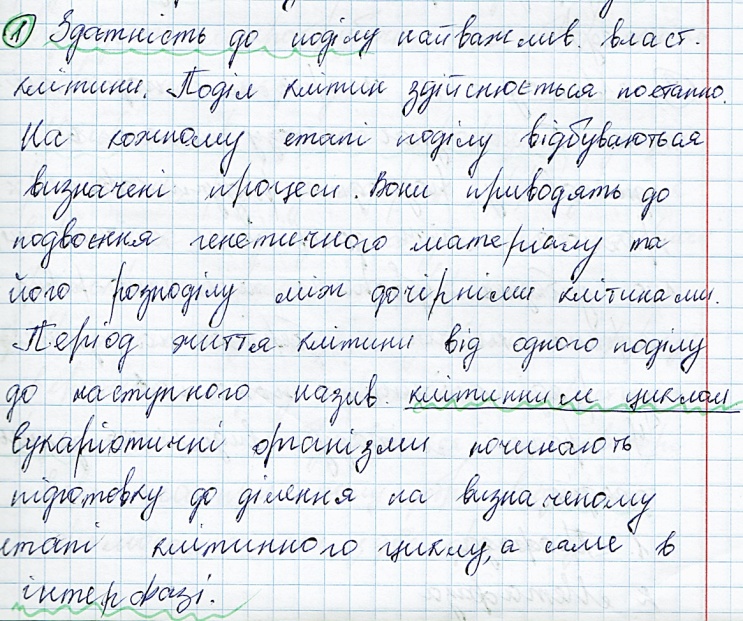 1 Здатність до поділу найважлив. власт.
клітини. Поділ клітин здійснюється поетапно.
На кожному етапі поділу відбуваються
визначені процеси. Вони приводять до
подвоєння генетичного матеріалу та
його розподілу між дочірніми клітинами.
Період життя клітини від одного поділу
до наступного назив. клітинним циклом
Еукаріотичні організми починають
підготовку до ділення на визначеному
етапі клітинного циклу, а саме в
інтерфазі.